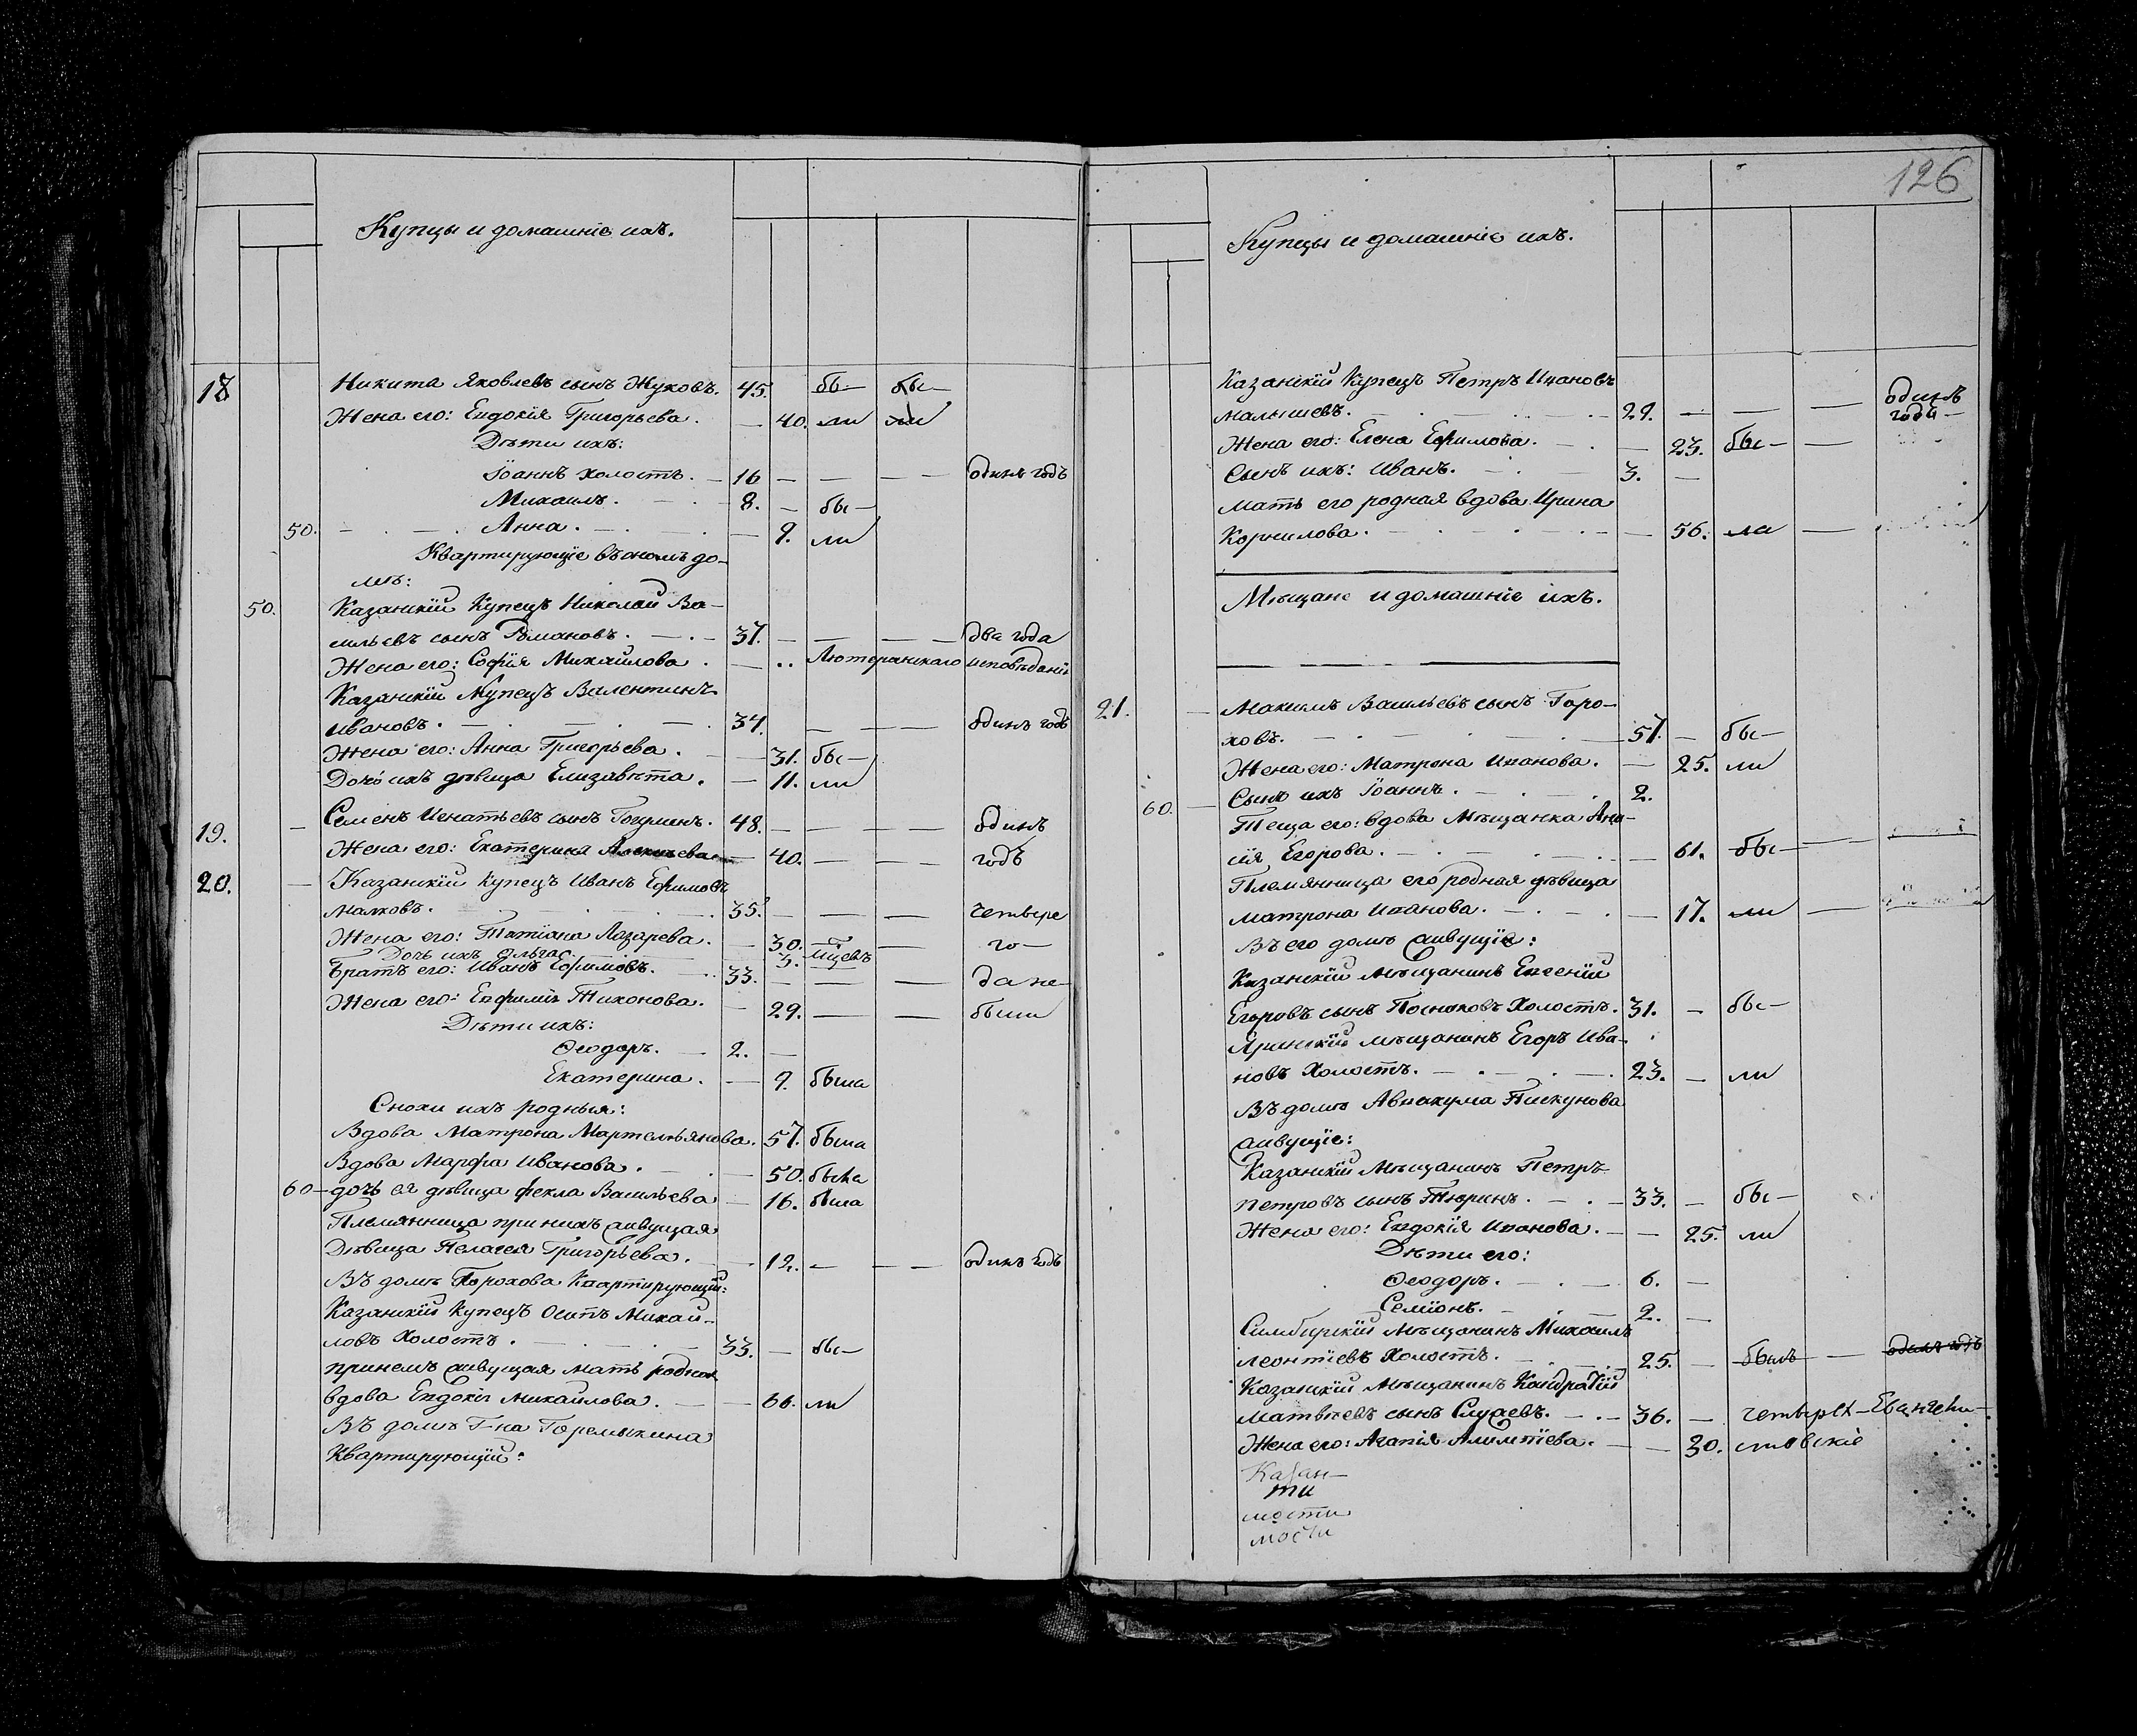 Купцы и домашніе ихъ.
18 Никита Яковлевъ сынъ Жуковъ. 45. бы- бы-
Жена его: Евдокія Григорьева. 40. ли ли
Дѣти ихъ:
Іоаннъ холостъ. 16 одинъ годъ
Михаилъ. 8. бы-
50. Анна. 9. ли
Квартирующіе въ ономъ до-
мѣ:
50. Казанскій Купецъ Николай Ва-
сильевъ сынъ Романовъ. 37. два года
Жена его: Софія Михайлова. Лютеранскаго исповѣданія
Казанскій Купецъ Валентинъ
Ивановъ. 34. одинъ годъ
Жена его: Анна Григорьева. 31. бы-
Дочь ихъ дѣвица Елизавета. 11. ли
19. Семенъ Игнатьевъ сынъ 48. одинъ
Жена его: Екатерина Алексѣева 40. годъ
20. Казанскій Купецъ Иванъ Ефимовъ
Малковъ. 35. четвере
Жена его: Татіана Лазарева. 30. го-
Дочь ихъ Ольга 3.
Братъ его: Иванъ Ефимовъ. 33. да не
Жена его: Евфимія Тихонова. 29. были
Дѣти ихъ:
Ѳеодоръ. 2.
Екатерина. 9. была
Снохи ихъ родныя:
Вдова Матрона Мартемьянова. 57. была
Вдова Марфа Иванова. 50. была
60 дочь ея дѣвица Фекла Васильева 16. была
Племянница при нихъ живущая
Дѣвица Пелагея Григорьева. 12. одинъ годъ
Въ домѣ Горохова Квартирующій:
Казанскій Купецъ Осипъ Михай-
ловъ Холостъ. 33. бы-
при немъ живущая мать родная
вдова Евдокія Михайлова. 66. ли
Въ домѣ Г-на Горемыкина
Квартирующій:
126
Купцы и домашніе ихъ.
Казанскій Купецъ Петръ Ивановъ
Малышевъ. 29. одинъ годъ
Жена его: Елена Ефимова. 23. бы-
Сынъ ихъ: Иванъ. 3.
Мать его родная вдова Ирина
Корнилова. 56. ла
Мѣщане и домашніе ихъ.
21. Максимъ Васильевъ сынъ Горо-
ховъ. 57. бы-
Жена его: Матрона Иванова. 25. ли
60. Сынъ ихъ Іоаннъ. 2.
Теща его: вдова Мѣщанка Ани-
сія Егорова. 61. бы-
Племянница его родная дѣвица
Матрона Иванова. 17. ли
Въ его домѣ живущіе:
Казанскій мѣщанинъ Евгеній
Егоровъ сынъ Посниковъ Холостъ. 31. бы-
Яринскій мѣщанинъ Егоръ Ива-
новъ Холостъ. 23. ли
Въ домѣ Аввакума Пискунова
живущіе:
Казанскій Мѣщанинъ Петръ
Петровъ сынъ Тюринъ. 33. бы-
Жена его: Евдокія Иванова. 25. ли
Дѣти его:
Ѳеодоръ. 6.
Семіонъ. 2.
Симбирскій Мѣщанинъ Михаилъ
Леонтіевъ Холостъ. 25. былъ одинъ годъ
Казанскій Мѣщанинъ Кондратій
Матвѣевъ сынъ 36. Евангели-
Жена его: Агапія Алимпіева. 30. стовскіе
Казан-
ти
мости
мости